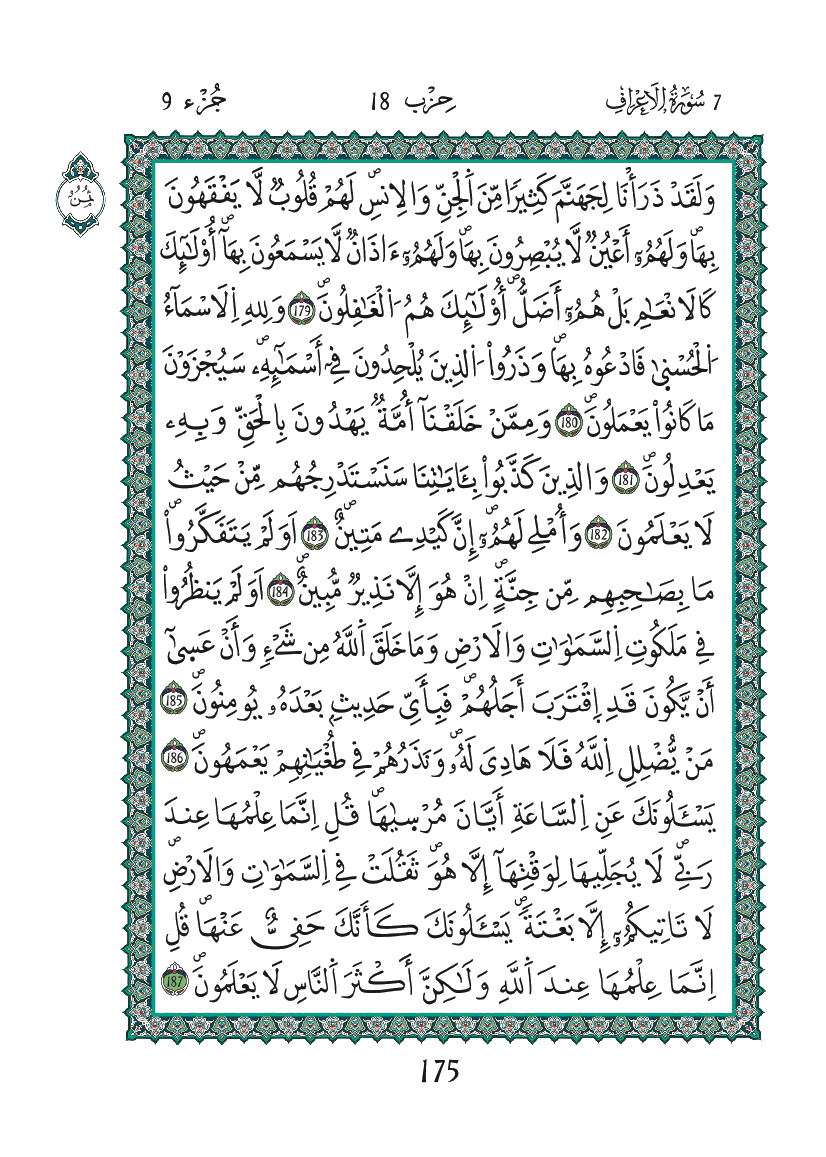 7 سُورَةُ الَاعْرَافِ
حِزْب 18
جُزْء 9
ثُمُنُ
وَلَقَدْ ذَرَأْنَا لِجَهَنَّمَ كَثِيرًا مِّنَ اَ۬لْجِنِّ وَالِانسِۖ لَهُمْ قُلُوبٞ لَّا يَفْقَهُونَ
بِهَاۖ وَلَهُمُۥٓ أَعْيُنٞ لَّا يُبْصِرُونَ بِهَاۖ وَلَهُمُۥٓ ءَاذَانٞ لَّا يَسْمَعُونَ بِهَآۖ أُوْلَٰٓئِكَ
كَالَانْعَٰمِ بَلْ هُمُۥٓ أَضَلُّۖ أُوْلَٰٓئِكَ هُمُ اُ۬لْغَٰفِلُونَۖ 179 وَلِلهِ اِ۬لَاسْمَآءُ
اُ۬لْحُسْن۪ىٰ فَادْعُوهُ بِهَاۖ وَذَرُواْ اُ۬لذِينَ يُلْحِدُونَ فِےٓ أَسْمَٰٓئِهِۦۖ سَيُجْزَوْنَ
مَا كَانُواْ يَعْمَلُونَۖ 180 وَمِمَّنْ خَلَقْنَآ أُمَّةٞ يَهْدُونَ بِالْحَقِّ وَبِهِۦ
يَعْدِلُونَۖ 181 وَالذِينَ كَذَّبُواْ بِـَٔايَٰتِنَا سَنَسْتَدْرِجُهُم مِّنْ حَيْثُ
لَا يَعْلَمُونَ 182 وَأُمْلِے لَهُمُۥٓۖ إِنَّ كَيْدِے مَتِينٌۖ 183 اَوَلَمْ يَتَفَكَّرُواْۖ
مَا بِصَٰحِبِهِم مِّن جِنَّةٍۖ اِنْ هُوَ إِلَّا نَذِيرٞ مُّبِينٌۖ 184 اَوَلَمْ يَنظُرُواْ
فِے مَلَكُوتِ اِ۬لسَّمَٰوَٰتِ وَالَارْضِ وَمَا خَلَقَ اَ۬للَّهُ مِن شَےْءٖ وَأَنْ عَس۪ىٰٓ
أَنْ يَّكُونَ قَدِ اِ۪قْتَرَبَ أَجَلُهُمْۖ فَبِأَيِّ حَدِيثِۢ بَعْدَهُۥ يُومِنُونَۖ 185
مَنْ يُّضْلِلِ اِ۬للَّهُ فَلَا هَادِيَ لَهُۥۖ وَنَذَرُهُمْ فِے طُغْيَٰنِهِمْ يَعْمَهُونَۖ 186
يَسْـَٔلُونَكَ عَنِ اِ۬لسَّاعَةِ أَيَّانَ مُرْس۪ىٰهَاۖ قُلِ اِنَّمَا عِلْمُهَا عِندَ
رَبِّےۖ لَا يُجَلِّيهَا لِوَقْتِهَآ إِلَّا هُوَۖ ثَقُلَتْ فِے اِ۬لسَّمَٰوَٰتِ وَالَارْضِۖ
لَا تَاتِيكُمُۥٓ إِلَّا بَغْتَةٗۖ يَسْـَٔلُونَكَ كَأَنَّكَ حَفِيٌّ عَنْهَاۖ قُلِ
اِنَّمَا عِلْمُهَا عِندَ اَ۬للَّهِ وَلَٰكِنَّ أَكْثَرَ اَ۬لنَّاسِ لَا يَعْلَمُونَۖ 187
175